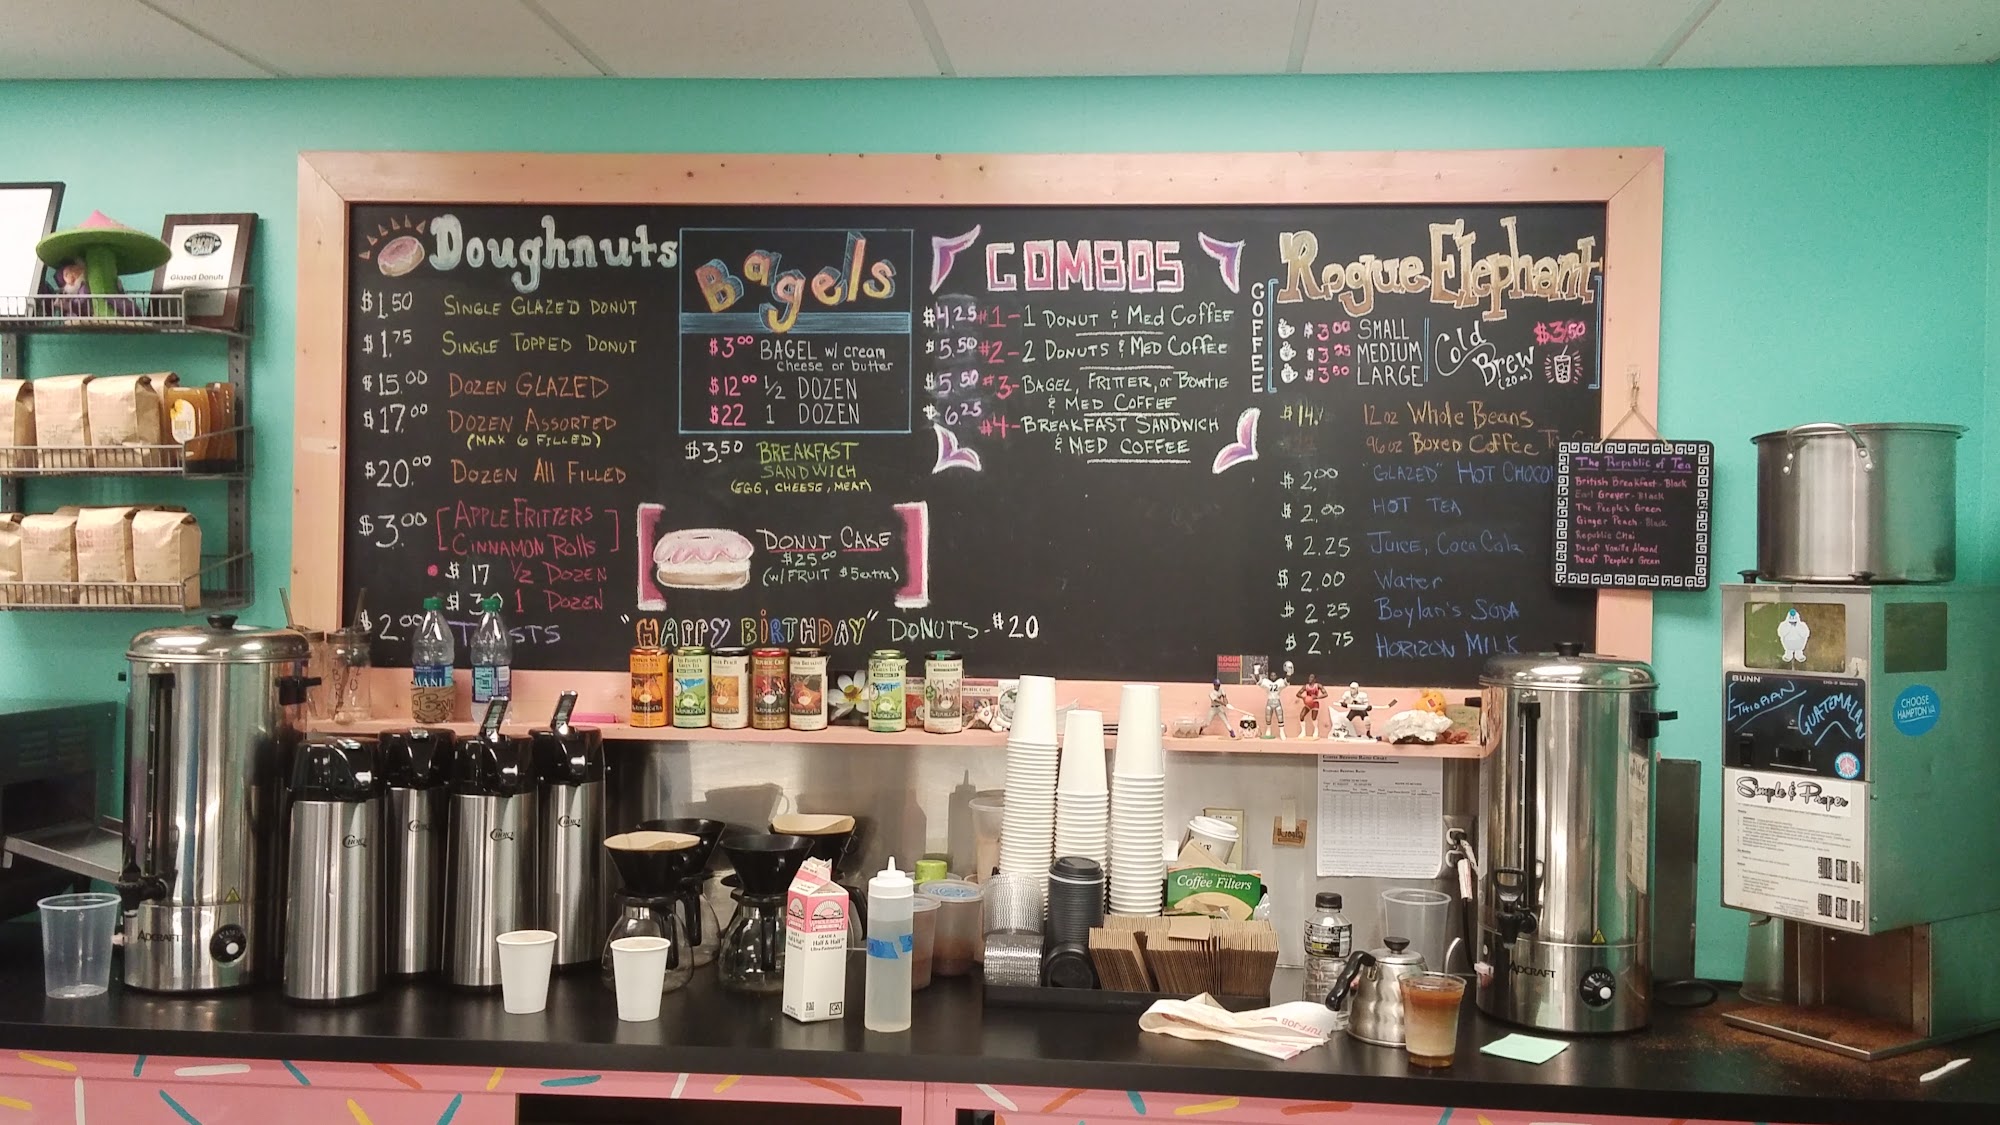 Glazed Donuts
Doughnuts
$1.50 SINGLE GLAZED DONUT
$1.75 SINGLE TOPPED DONUT
$15.00 DOZEN GLAZED
$17.00 DOZEN ASSORTED
(MAX 6 FILLED)
$20.00 DOZEN ALL FILLED
$3.00 APPLE FRITTERS
CINNAMON ROLLS
$17 1/2 DOZEN
1 DOZEN
$2.00
Bagels
$3.00 BAGEL w/ cream
cheese or butter
$12.00 1/2 DOZEN
$22 1 DOZEN
$3.50 BREAKFAST
SANDWICH
(EGG, CHEESE, MEAT)
DONUT CAKE
$25.00
(w/FRUIT $5 extra)
"HAPPY BIRTHDAY" DONUTS - $20
COMBOS
$4.25 #1 - 1 DONUT & MED COFFEE
$5.50 #2 - 2 DONUTS & MED COFFEE
$5.50 #3 - BAGEL, FRITTER, or BOWTIE
& MED COFFEE
$6.25 #4 - BREAKFAST SANDWICH
& MED COFFEE
Rogue Elephant
COFFEE
$3.00 SMALL
$3.25 MEDIUM
$3.50 LARGE
Cold
Brew
(20 oz)
$3.50
$14. 12 oz Whole Beans
96 oz Boxed Coffee
$2.00 "GLAZED" HOT CHOCO
$2.00 HOT TEA
$2.25 JUICE, Coca Cola
$2.00 Water
$2.25 Boylan's SODA
$2.75 HORIZON MILK
The Republic of Tea
British Breakfast - Black
Earl Greyer - Black
The People's Green
Ginger Peach - Black
Republic Chai
Decaf Vanilla Almond
Decaf People's Green
BUNN
ETHIOPIAN
GUATEMALAN
CHOOSE
HAMPTON VA
Simple & Proper
ADCRAFT
ADCRAFT
Half & Half
Coffee Filters
TUFF-JOB